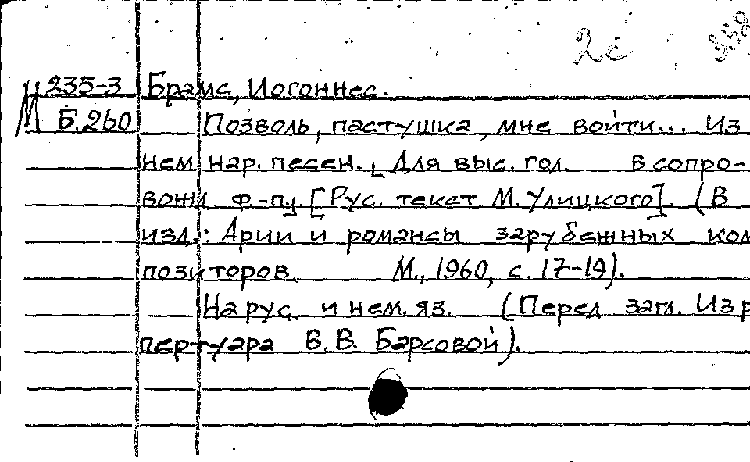 2с
М 235-3 Брамс, Иоганнес.
Б.260 Позволь, пастушка, мне войти... Из
нем. нар. песен. Для выс. гол. в сопро-
вожд ф-пу. [Рус. текст М. Улицкого]. (В
изд.: Арии и романсы зарубежных ком
позиторов. М., 1960, с. 17-19).
На рус. и нем. яз. (Перед загл. Из р
пертуара В.В. Барсовой).